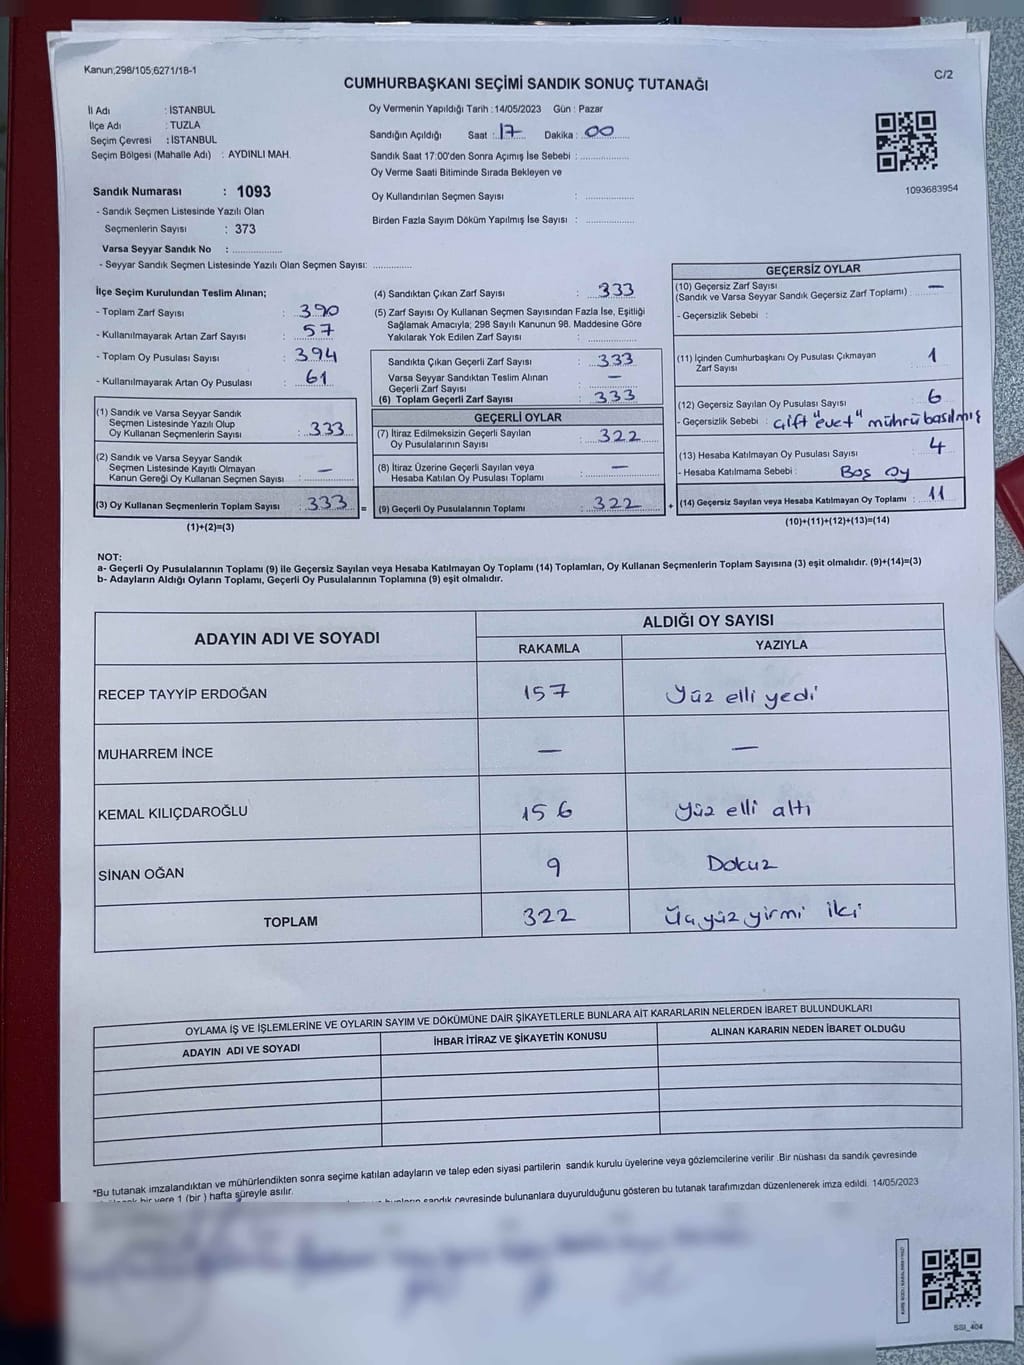 Kanun;298/105;6271/18-1
C/2
CUMHURBAŞKANI SEÇİMİ SANDIK SONUÇ TUTANAĞI
İl Adı : İSTANBUL
İlçe Adı : TUZLA
Seçim Çevresi : İSTANBUL
Seçim Bölgesi (Mahalle Adı) : AYDINLI MAH.
Oy Vermenin Yapıldığı Tarih : 14/05/2023 Gün : Pazar
Sandığın Açıldığı Saat : 17 Dakika : 00
Sandık Saat 17:00'den Sonra Açımış İse Sebebi : ..............
Oy Verme Saati Bitiminde Sırada Bekleyen ve
Oy Kullandırılan Seçmen Sayısı : ..............
Birden Fazla Sayım Döküm Yapılmış İse Sayısı : ..............
1093683954
Sandık Numarası : 1093
- Sandık Seçmen Listesinde Yazılı Olan
Seçmenlerin Sayısı : 373
Varsa Seyyar Sandık No : ..............
- Seyyar Sandık Seçmen Listesinde Yazılı Olan Seçmen Sayısı: ..............
İlçe Seçim Kurulundan Teslim Alınan;
- Toplam Zarf Sayısı : 390
- Kullanılmayarak Artan Zarf Sayısı : 57
- Toplam Oy Pusulası Sayısı : 394
- Kullanılmayarak Artan Oy Pusulası : 61
(1) Sandık ve Varsa Seyyar Sandık
Seçmen Listesinde Yazılı Olup
Oy Kullanan Seçmenlerin Sayısı : 333
(2) Sandık ve Varsa Seyyar Sandık
Seçmen Listesinde Kayıtlı Olmayan
Kanun Gereği Oy Kullanan Seçmen Sayısı : —
(3) Oy Kullanan Seçmenlerin Toplam Sayısı : 333 =
(1)+(2)=(3)
(4) Sandıktan Çıkan Zarf Sayısı : 333
(5) Zarf Sayısı Oy Kullanan Seçmen Sayısından Fazla İse, Eşitliği
Sağlamak Amacıyla; 298 Sayılı Kanunun 98. Maddesine Göre
Yakılarak Yok Edilen Zarf Sayısı : ..............
Sandıkta Çıkan Geçerli Zarf Sayısı : 333
Varsa Seyyar Sandıktan Teslim Alınan
Geçerli Zarf Sayısı : —
(6) Toplam Geçerli Zarf Sayısı : 333
GEÇERLİ OYLAR
(7) İtiraz Edilmeksizin Geçerli Sayılan
Oy Pusulalarının Sayısı : 322
(8) İtiraz Üzerine Geçerli Sayılan veya
Hesaba Katılan Oy Pusulası Toplamı : —
(9) Geçerli Oy Pusulalarının Toplamı : 322 +
GEÇERSİZ OYLAR
(10) Geçersiz Zarf Sayısı
(Sandık ve Varsa Seyyar Sandık Geçersiz Zarf Toplamı) : —
- Geçersizlik Sebebi :
(11) İçinden Cumhurbaşkanı Oy Pusulası Çıkmayan
Zarf Sayısı : 1
(12) Geçersiz Sayılan Oy Pusulası Sayısı : 6
- Geçersizlik Sebebi : Çift "evet" mührü basılmış
(13) Hesaba Katılmayan Oy Pusulası Sayısı : 4
- Hesaba Katılmama Sebebi : Boş oy
(14) Geçersiz Sayılan veya Hesaba Katılmayan Oy Toplamı : 11
(10)+(11)+(12)+(13)=(14)
NOT:
a- Geçerli Oy Pusulalarının Toplamı (9) ile Geçersiz Sayılan veya Hesaba Katılmayan Oy Toplamı (14) Toplamları, Oy Kullanan Seçmenlerin Toplam Sayısına (3) eşit olmalıdır. (9)+(14)=(3)
b- Adayların Aldığı Oyların Toplamı, Geçerli Oy Pusulalarının Toplamına (9) eşit olmalıdır.
ADAYIN ADI VE SOYADI
ALDIĞI OY SAYISI
RAKAMLA YAZIYLA
RECEP TAYYİP ERDOĞAN 157 Yüz elli yedi
MUHARREM İNCE — —
KEMAL KILIÇDAROĞLU 156 Yüz elli altı
SİNAN OĞAN 9 Dokuz
TOPLAM 322 Üçyüz yirmi iki
OYLAMA İŞ VE İŞLEMLERİNE VE OYLARIN SAYIM VE DÖKÜMÜNE DAİR ŞİKAYETLERLE BUNLARA AİT KARARLARIN NELERDEN İBARET BULUNDUKLARI
ADAYIN ADI VE SOYADI İHBAR İTİRAZ VE ŞİKAYETİN KONUSU ALINAN KARARIN NEDEN İBARET OLDUĞU
*Bu tutanak imzalandıktan ve mühürlendikten sonra seçime katılan adayların ve talep eden siyasi partilerin sandık kurulu üyelerine veya gözlemcilerine verilir .Bir nüshası da sandık çevresinde
bir yere 1 (bir ) hafta süreyle asılır.
sandık çevresinde bulunanlara duyurulduğunu gösteren bu tutanak tarafımızdan düzenlenerek imza edildi. 14/05/2023
SSI_404